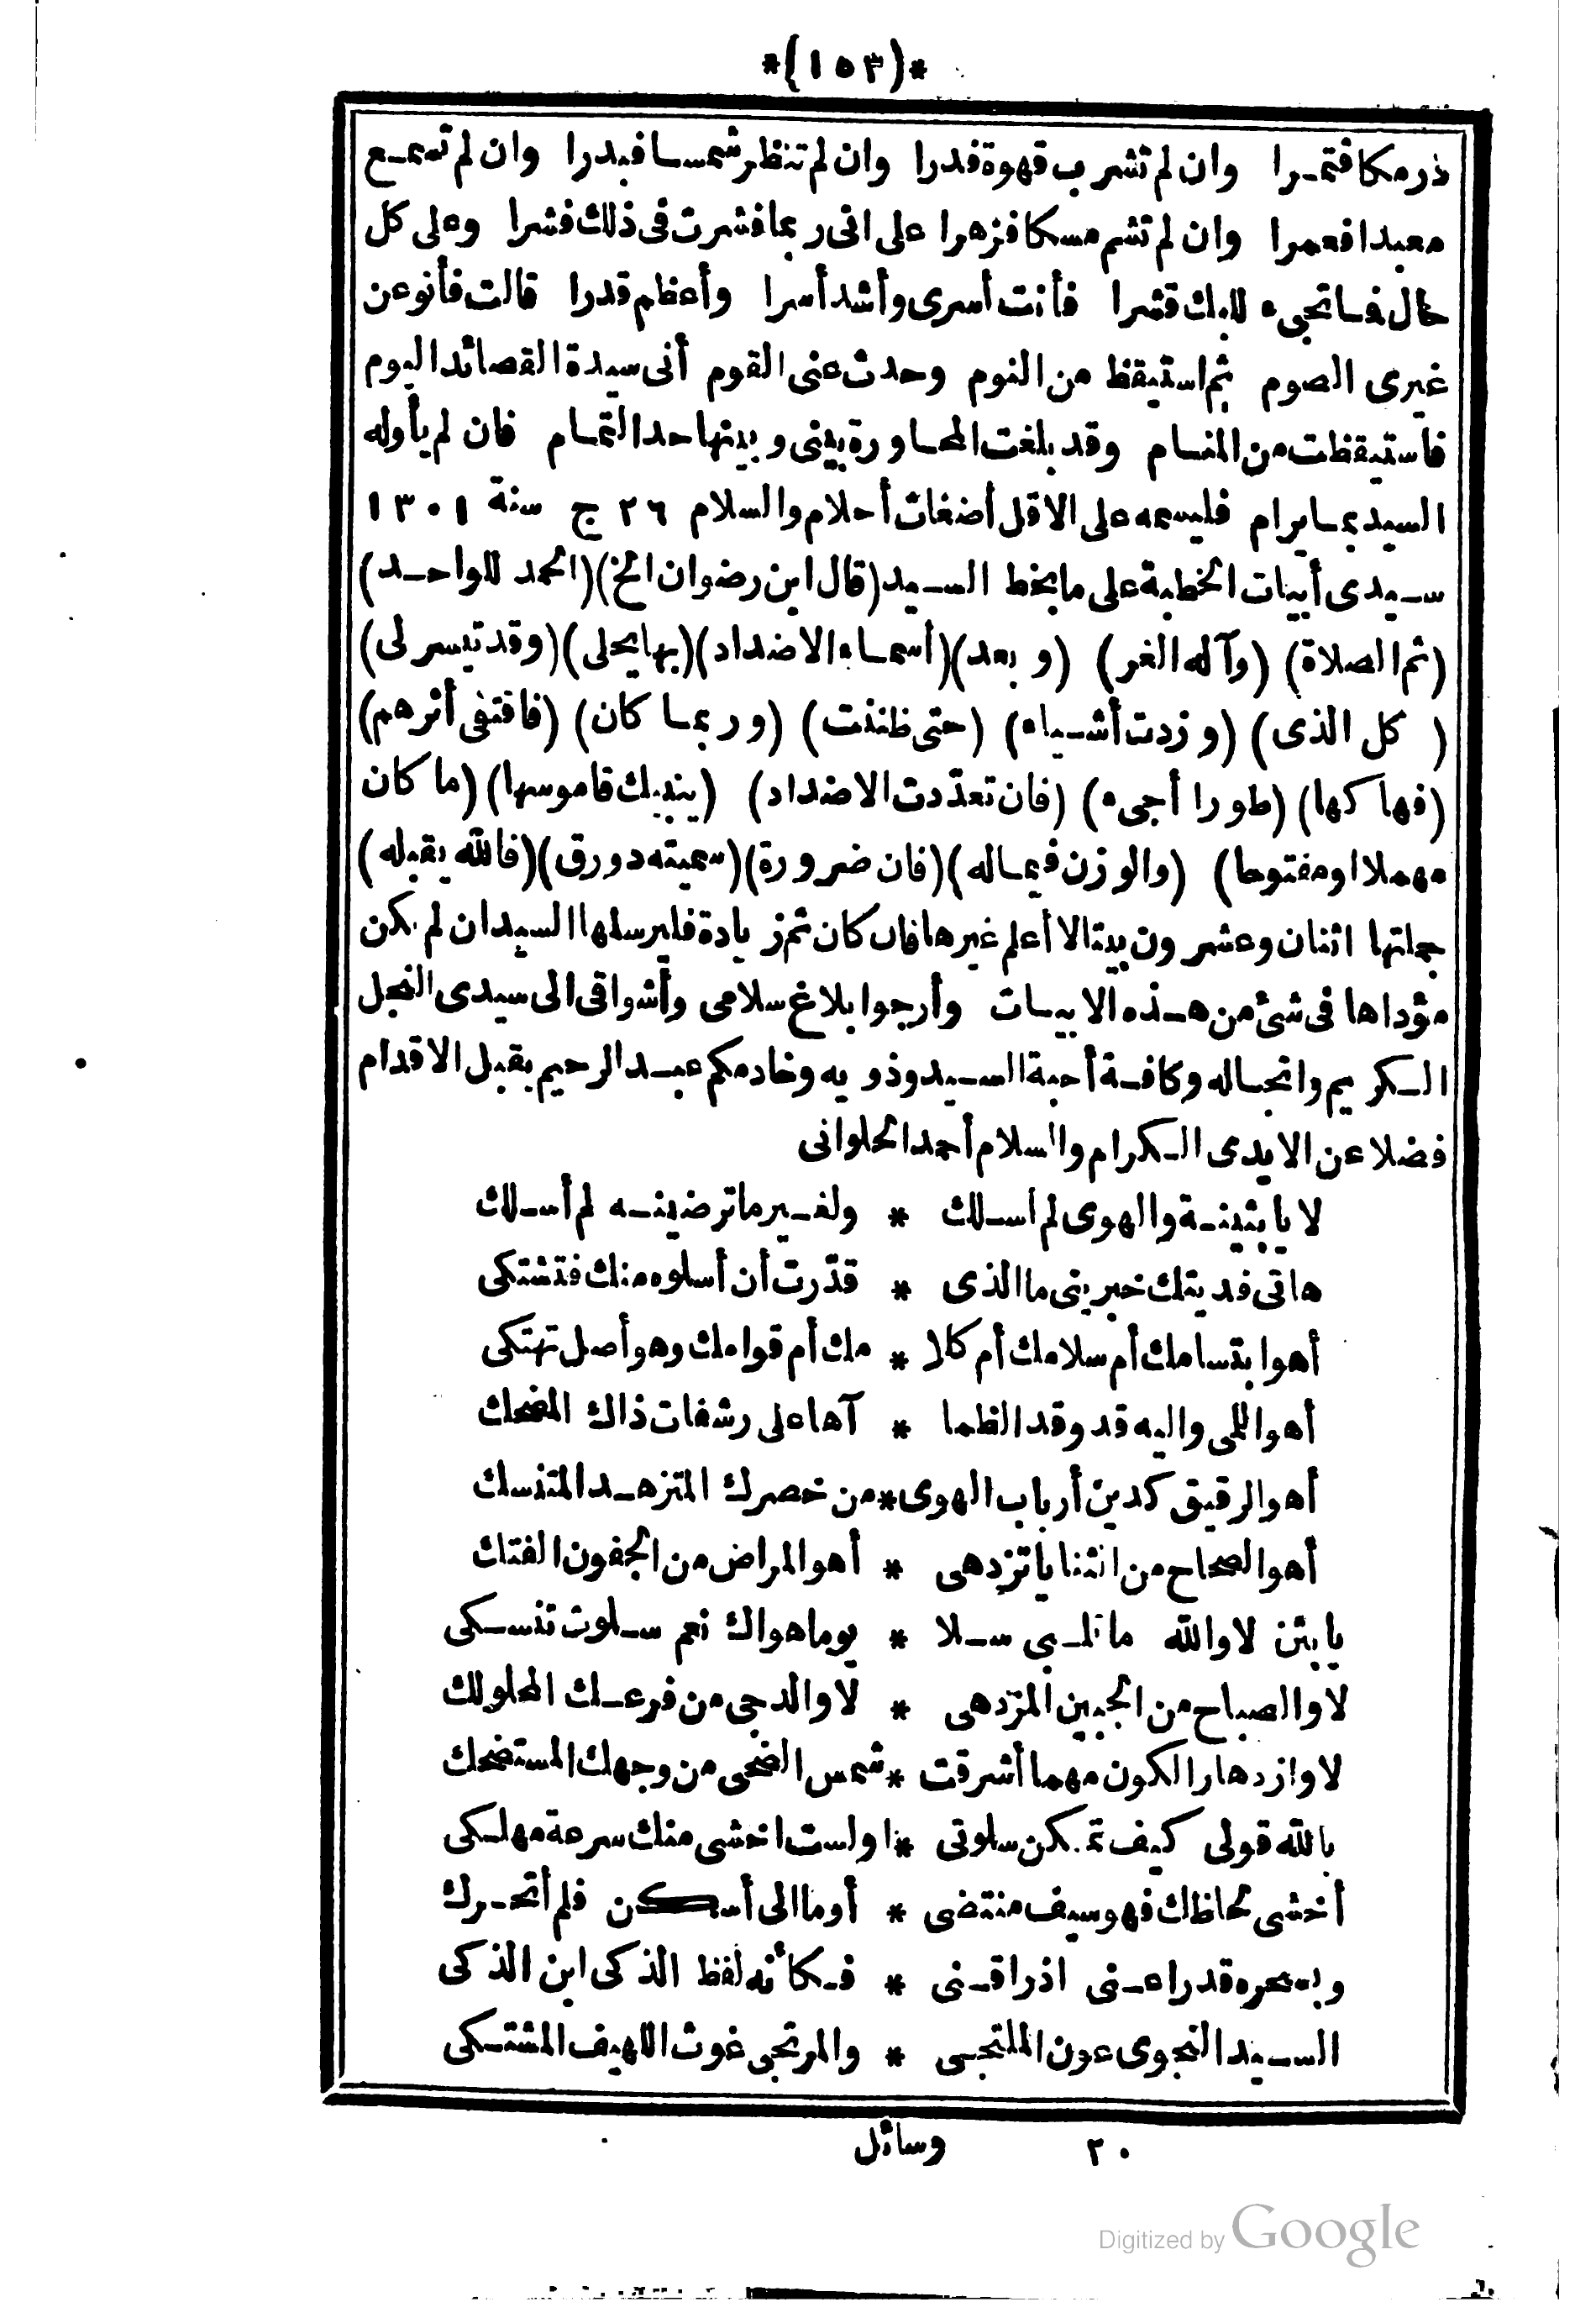 *(١٥٣)*
ذرمكا فتمرا وان لم تشرب قهوة فدرا وان لم تنظر شمسا فبدرا وان لم تسمع
معبدا فعمرا وان لم تشم مسكا فزهرا على انى ربما فشرت فى ذلك فشرا وعلى كل
حال فما تجىء لبابك قشرا فأنت أسرى وأشد أسرا وأعظم قدرا قالت فأنوعن
غيرى الصوم ثم استيقظ من النوم وحدث عنى القوم أنى سيدة القصائد اليوم
فاستيقظت من المنام وقد بلغت المحاورة بينى وبينها حد التمام فان لم يأوله
السيد بما يرام فليسمه على الاقل أضغاث أحلام والسلام ٢٦ ج سنة ١٣٠١
سيدى أبيات الخطبة على ما بخط السيد (قال ابن رضوان الخ) (الحمد للواحد)
(ثم الصلاة) (وآله الغر) (وبعد) (أسماء الاضداد) (بها يحلى) (وقد تيسر لى)
(كل الذى) (وزدت أشياء) (حتى ظننت) (وربما كان) (فاقتفى أثرهم)
(فهاكها) (طورا أجىء) (فان تعدّدت الاضداد) (ينبيك قاموسها) (ما كان
مهملا او مفتوحا) (والوزن فيماله) (فان ضرورة) (سميته دورق) (فالله يقبله)
جملتها اثنان وعشرون بيتا لا أعلم غيرها فان كان ثم زيادة فليرسلها السيد ان لم يكن
مؤداها فى شئ من هذه الابيات وأرجو ابلاغ سلامى وأشواقى الى سيدى النجل
الكريم وانجاله وكافة أحبة السيد وذويه وخادمكم عبد الرحيم يقبل الاقدام
فضلا عن الايدى الكرام والسلام أحمد الحلوانى
لا يا بثينة والهوى لم اسلك * ولغير ما ترضينه لم أسلك
هاتى فديتك خبرينى ما الذى * قدّرت أن أسلوه منك فتشتكى
أهو ابتسامك أم سلامك أم كلا * مك أم قوامك وهو أصل تهتكى
أهو اللمى واليه قد وقد الظما * آها على رشفات ذاك المضحك
أهو الرقيق كدين أرباب الهوى * من خصرك المتزهد المتنسك
أهو الصحاح من الثنايا تزدهى * أهو المراض من الجفون الفتك
يا بثن لا والله ما قلبى سلا * يوما هواك نعم سلوت تنسكى
لا والصباح من الجبين المزدهى * لا والدجى من فرعك المحلولك
لا وازدهار الكون مهما أشرقت * شمس الضحى من وجهك المستضحك
بالله قولى كيف تمكن سلوتى * اولست اخشى منك سرعة مهلكى
أخشى لحاظك فهو سيف منتضى * أوما الى أسكن فلم أتحرك
وبسحره قد راعنى اذ راقنى * فكأنه لفظ الذكى ابن الذكى
السيد النجوى عون الملتجى * والمرتجى غوث اللهيف المشتكى
٢٠ وسائل
Digitized by Google